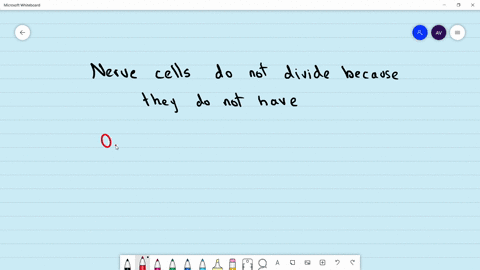 Microsoft Whiteboard
AV
Nerve cells do not divide because
they do not have
0.
A